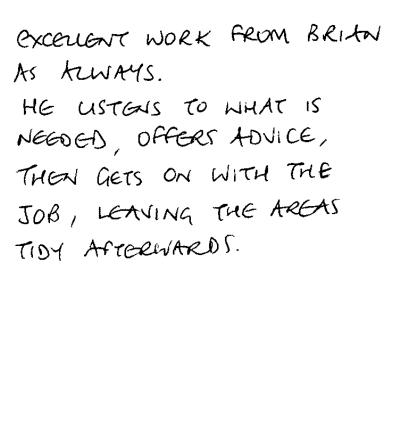 EXCELLENT WORK FROM BRIAN
AS ALWAYS.
HE LISTENS TO WHAT IS
NEEDED, OFFERS ADVICE,
THEN GETS ON WITH THE
JOB, LEAVING THE AREAS
TIDY AFTERWARDS.